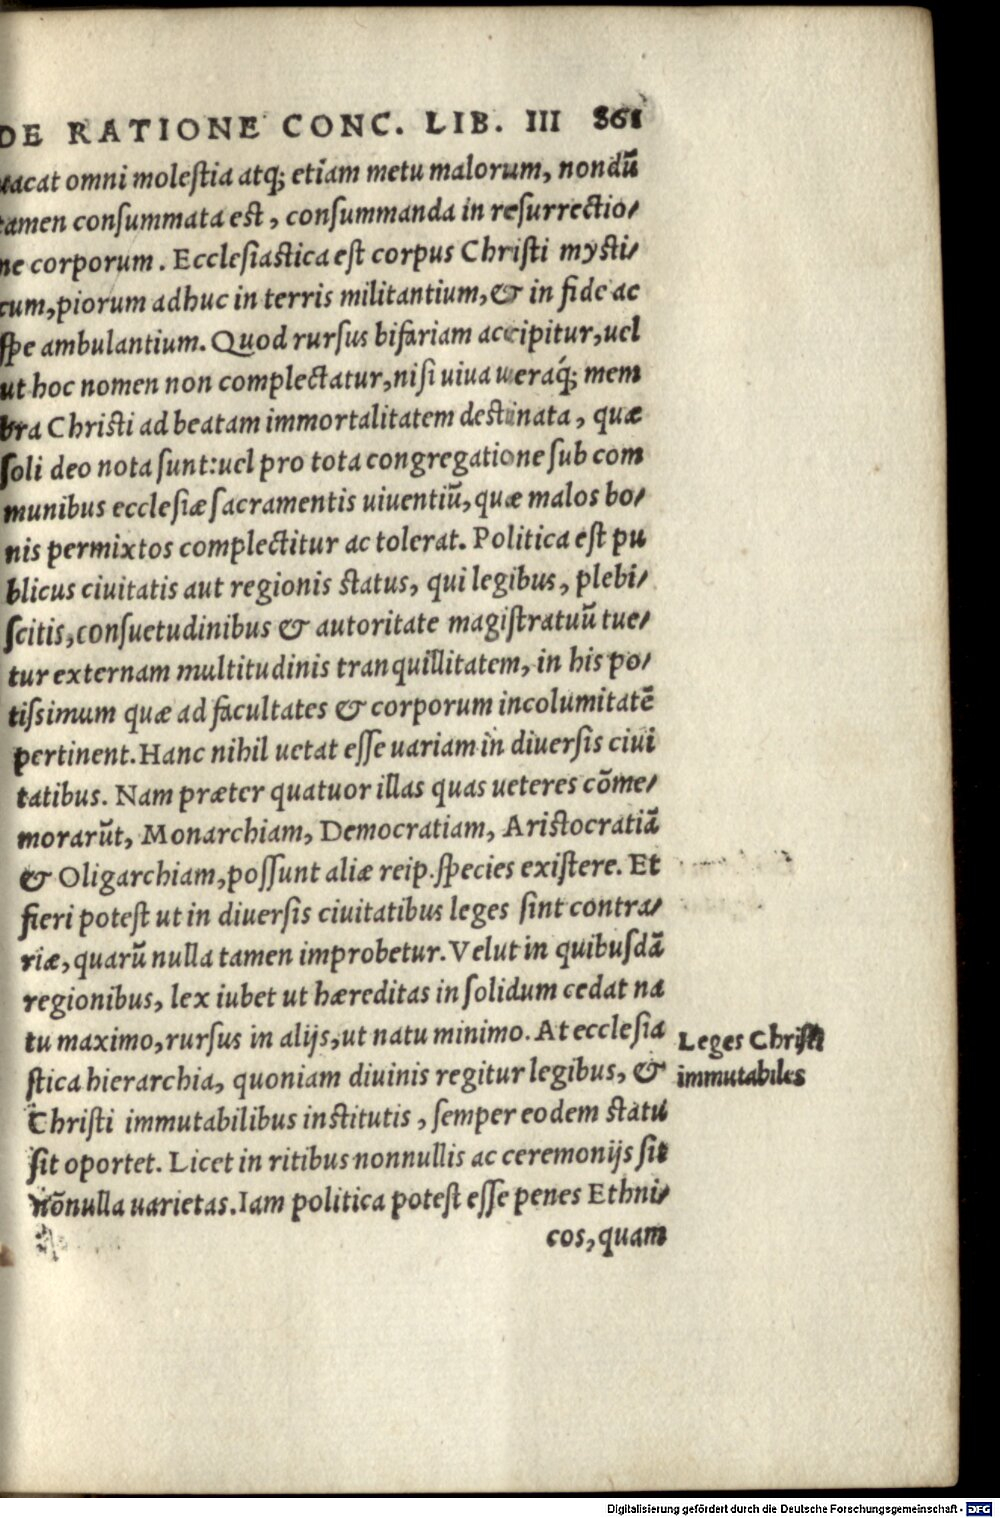 DE RATIONE CONC. LIB. III 861
uacat omni molestia atq; etiam metu malorum, nondū
tamen consummata est, consummanda in resurrectio/
ne corporum. Ecclesiastica est corpus Christi mysti/
cum, piorum adhuc in terris militantium, & in fide ac
spe ambulantium. Quod rursus bifariam accipitur, uel
ut hoc nomen non complectatur, nisi uiua ueraq́; mem
bra Christi ad beatam immortalitatem destinata, quæ
soli deo nota sunt: uel pro tota congregatione sub com
munibus ecclesiæ sacramentis uiuentiū, quæ malos bo/
nis permixtos complectitur ac tolerat. Politica est pu
blicus ciuitatis aut regionis status, qui legibus, plebi/
scitis, consuetudinibus & autoritate magistratuū tue/
tur externam multitudinis tranquillitatem, in his po/
tissimum quæ ad facultates & corporum incolumitatē
pertinent. Hanc nihil uetat esse uariam in diuersis ciui
tatibus. Nam præter quatuor illas quas ueteres cōme/
morarūt, Monarchiam, Democratiam, Aristocratiā
& Oligarchiam, possunt aliæ reip. species existere. Et
fieri potest ut in diuersis ciuitatibus leges sint contra/
riæ, quarū nulla tamen improbetur. Velut in quibusdā
regionibus, lex iubet ut hæreditas in solidum cedat na
tu maximo, rursus in alijs, ut natu minimo. At ecclesia
stica hierarchia, quoniam diuinis regitur legibus, &
Christi immutabilibus institutis, semper eodem statu
sit oportet. Licet in ritibus nonnullis ac ceremonijs sit
nōnulla uarietas. Iam politica potest esse penes Ethni/
cos, quam
Leges Christi
immutabiles
Digitalisierung gefördert durch die Deutsche Forschungsgemeinschaft - DFG